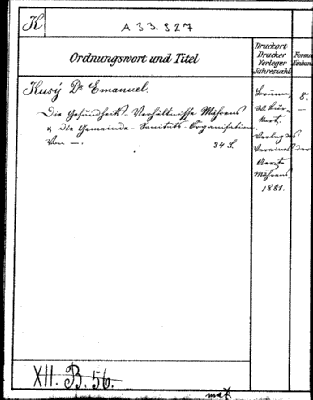 K
A 33.527
Ordnungswort und Titel
Druckort
Drucker
Verleger
Jahreszahl
Format
Einband
Kusý Dr Emanuel.
Die Gesundheits-Verhältnisse Mährens
& die Gemeinde-Sanitäts-Organisation
Von —.
34 S.
Brünn,
Verlag des
Vereines der
Aerzte
Mährens
1881.
8.
—
XII. B. 56.